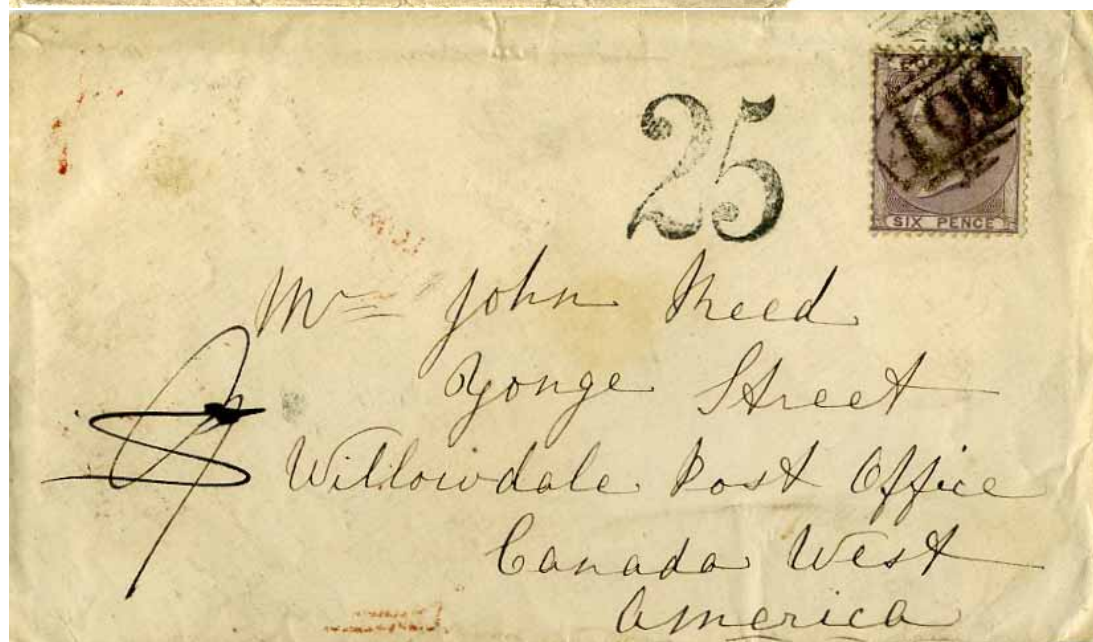 25
POSTAGE
SIX PENCE
Mr John Reed
Yonge Street
Willowdale Post Office
Canada West
America